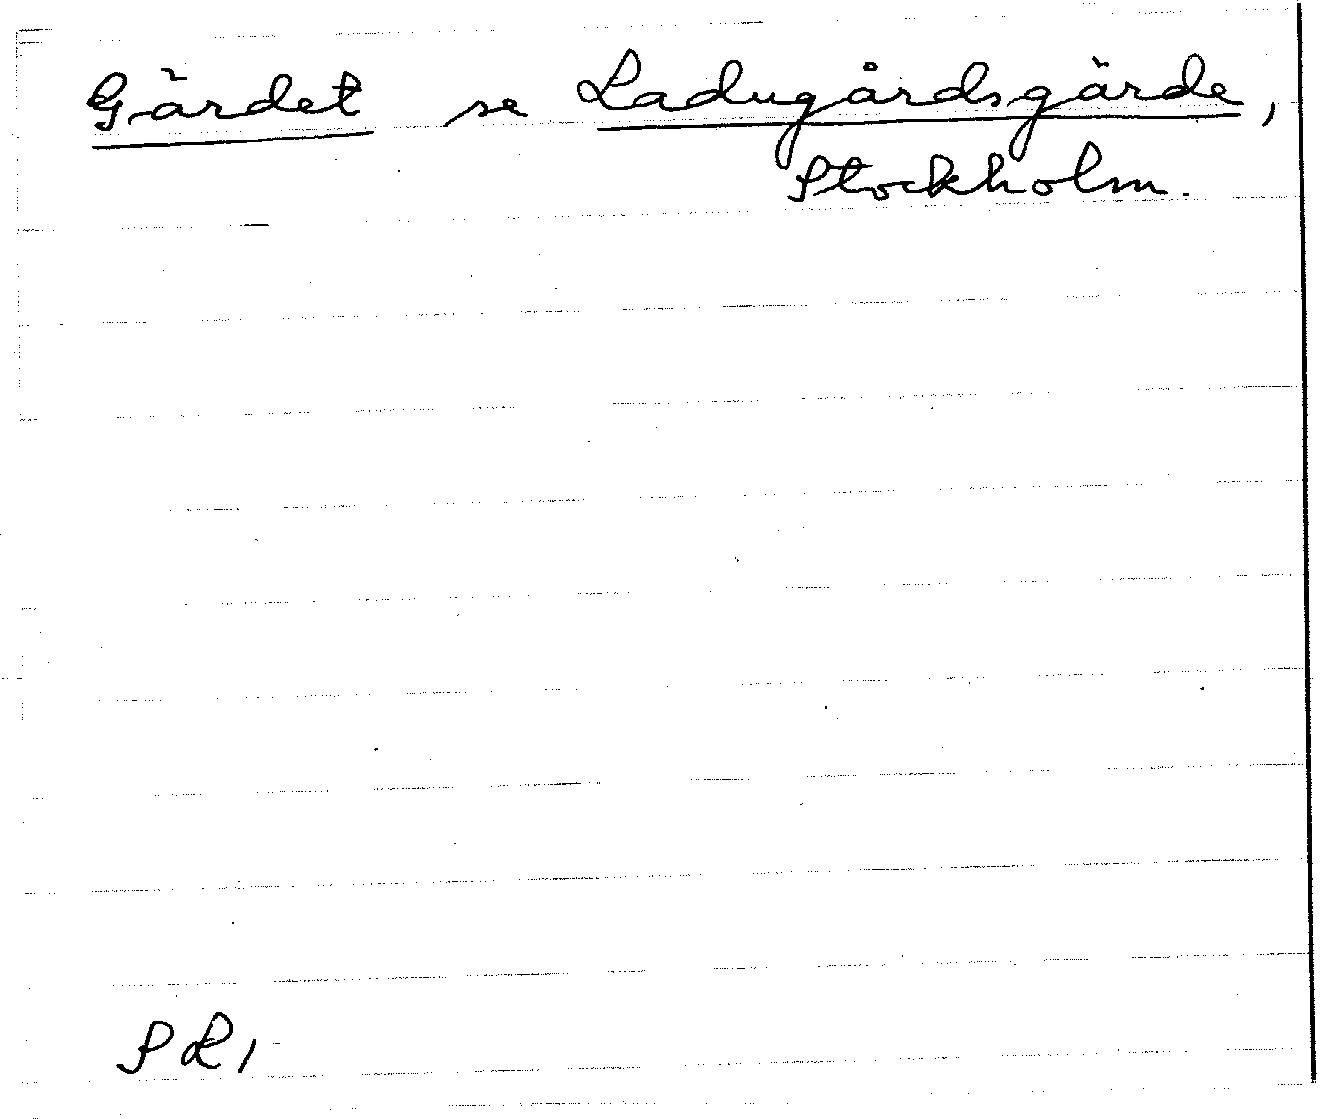 Gärdet se Ladugårdsgärde,
Stockholm.